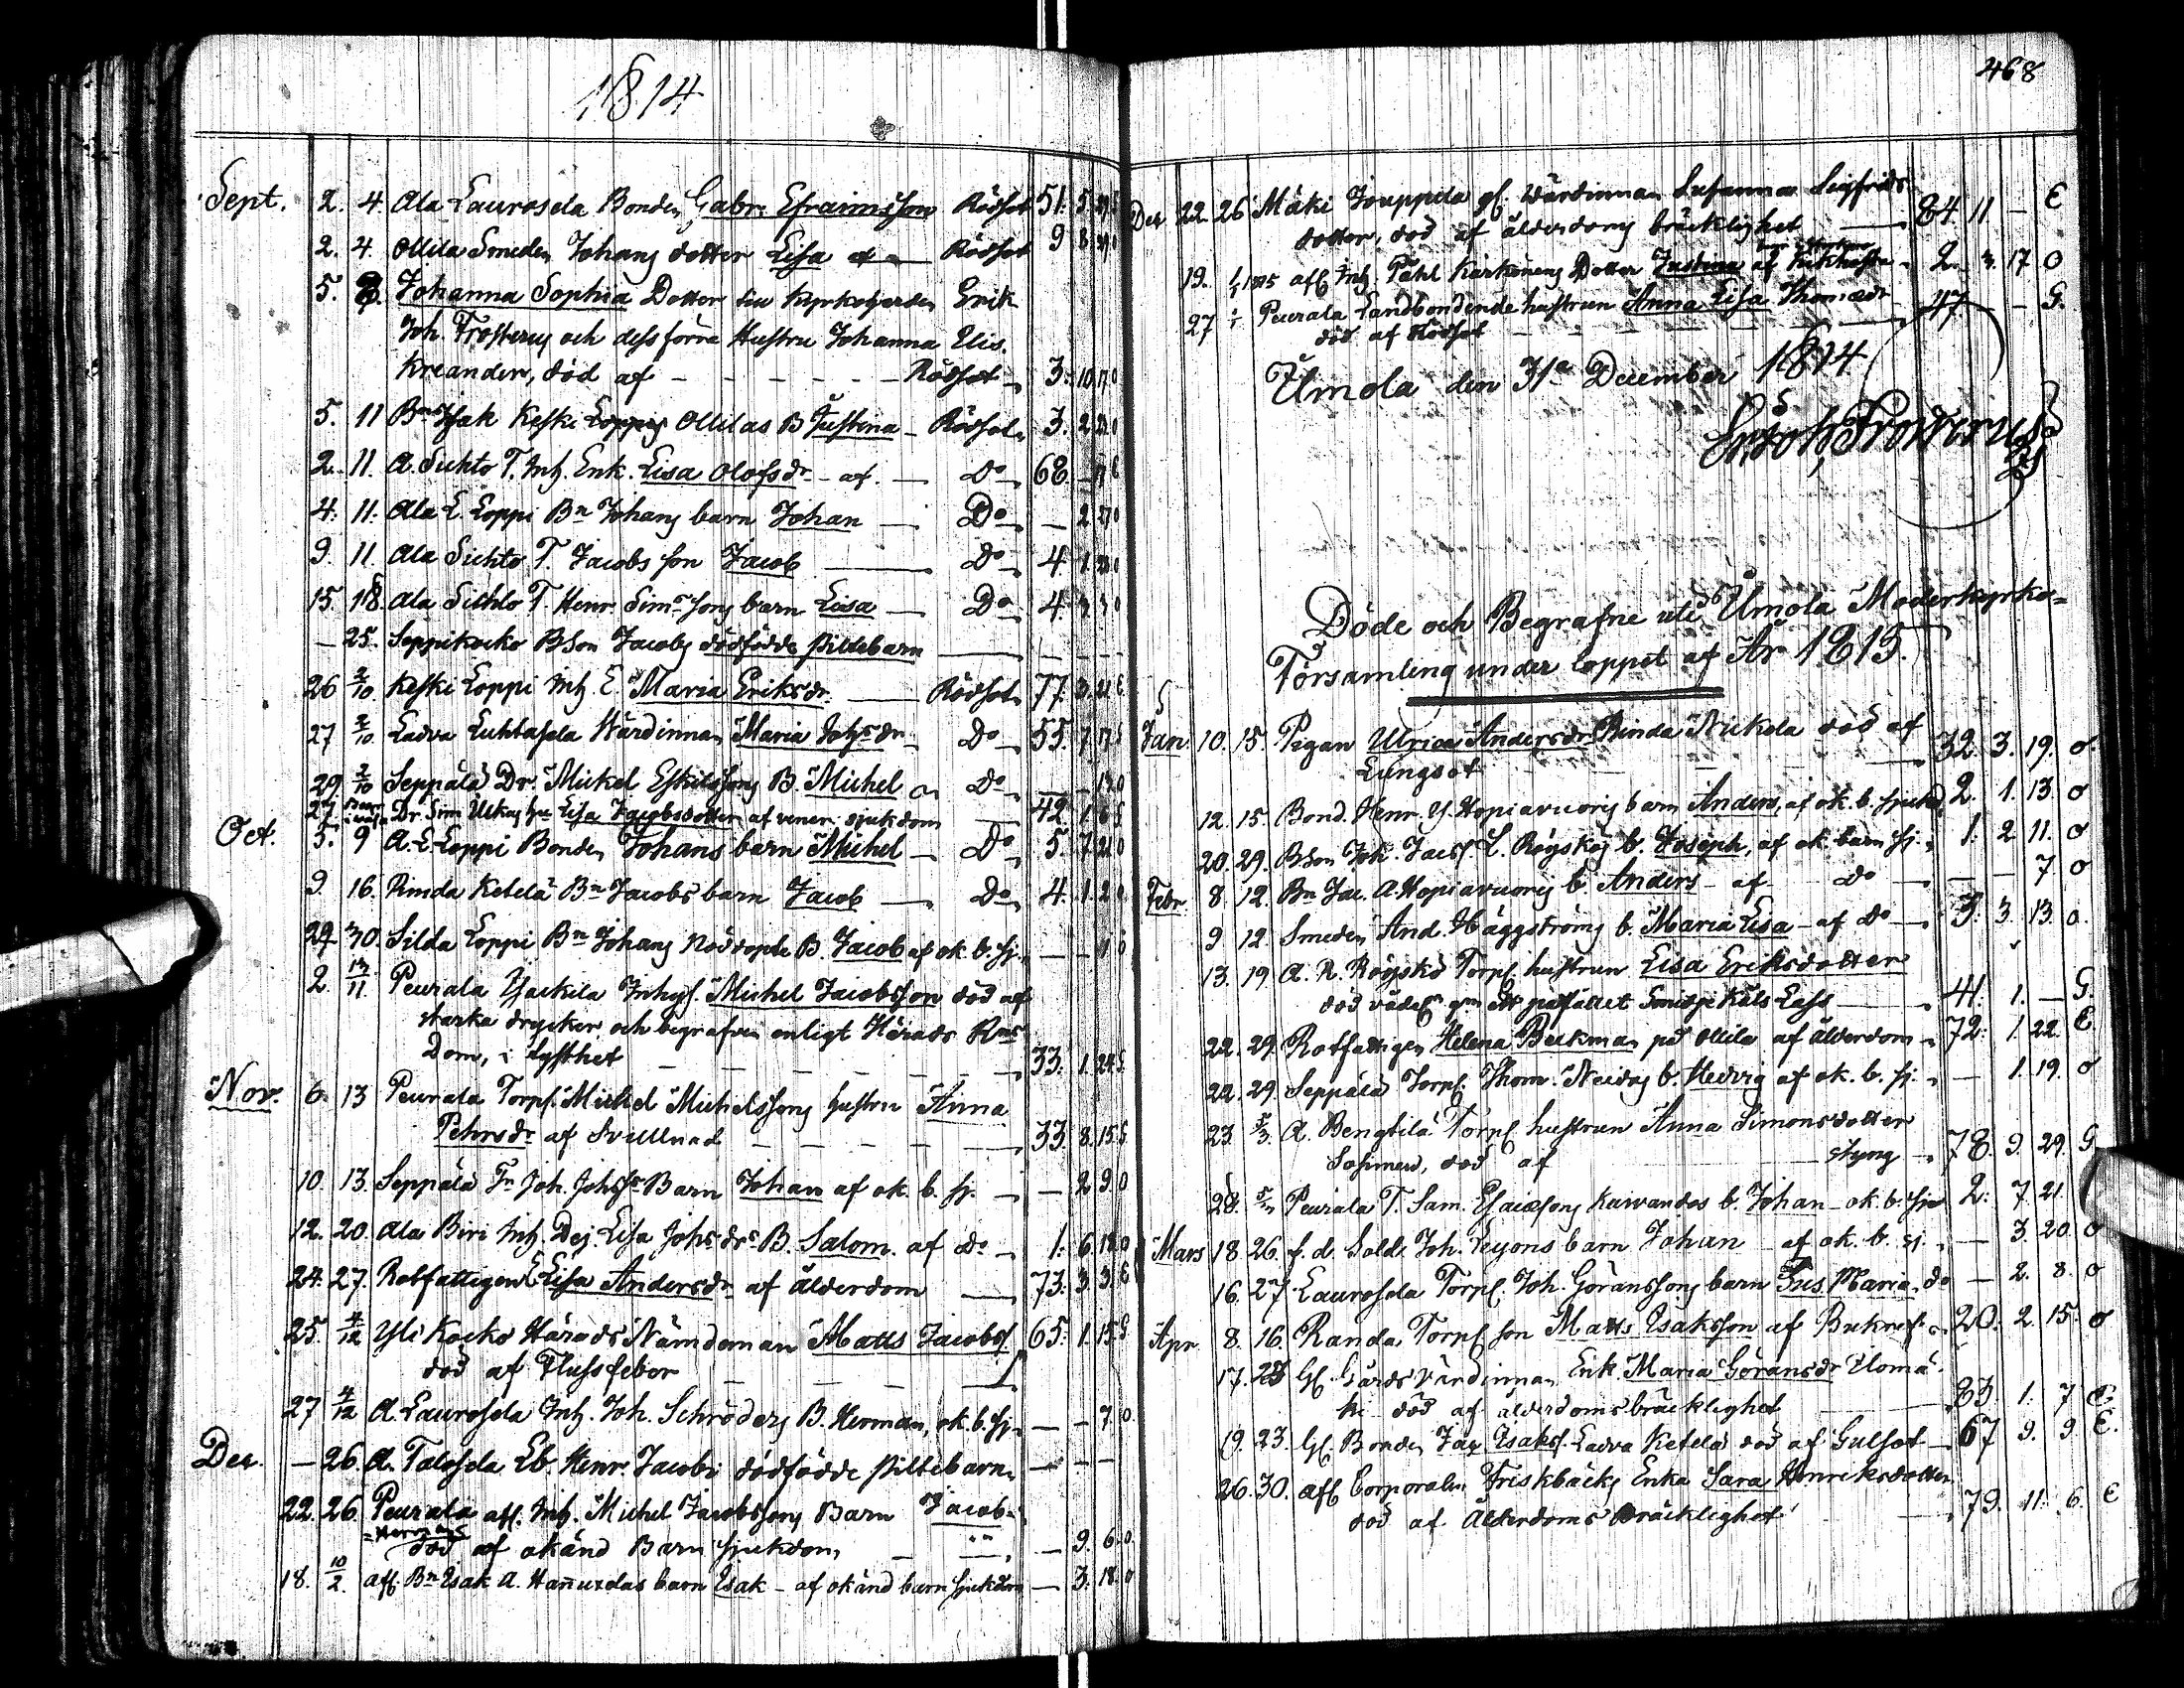 1814
Sept. 2. 4. Ala Laurosela Bonden Gabr. Efraimsson Rödsot 51. 5.
2. 4. Ollila Smeden Johans dotter Lisa af Rödsot 9 8
5. Johanna Sophia Dotter till Kyrkoherden Erik
Joh. Frosterus och dess förra Hustru Johanna Elis.
Kreander, död af - - - - - - Rödsot 3. 10
5. 11 Bns Isak Keski Loppis Ollilas B Justina - Rödsot 3. 2
2. 11. A. Suhto T. Inh. Enk. Lisa Olofsdr - af. - Do 68.
4. 11. Ala L. Loppi Bn Johans barn Johan - Do - 2
9. 11 Ala Suhto T. Jacobs son Jacob - Do 4. 1.
15. 18. Ala Suhto T. Henr. Sims sons barn Lisa - Do 4. 3
- 25. Seppikocko BSon Jacobs dödfödde Piltebarn
26 2/10 Keski Loppi Inh. E. Maria Eriksdr. Rödsot 77. 3.
27 2/10. Ladva Luhtasela Wärdinnan Maria Johsdr Do 55. 7.
29. 2/10 Seppälä Dr. Mickel Eskilssons B. Michel Do
27. Dr. Sim Ulkas hu Lisa Jacobsdotter af vener. sjukdom 42. 1. 6 G
Oct. 5. 9 A. L. Loppi Bonden Johans barn Michel - Do 5. 7. 21 O
9. 16. Rinda Ketelä Bn Jacobs barn Jacob - Do 4. 1. 2 O
29. 30. Silda Loppi Bn Johans nöddöpte B. Jacob af ok. b. sj.
2. 13/11. Peurala Yackila Inhys. Michel Jacobsson död af
starka drycker och begrafven enligt Härads Rns
Dom, i tysthet - - - 33. 1. 24 G
Nov. 6. 13 Peurala Torp. Mickel Michelssons hustru Anna
Pehrsdr af Svullnad - - - 33. 8. 15 G
10. 13. Seppälä Tn Joh. Johss Barn Johan af ok. b. sj. - 2 9 O
12. 20. Ala Biri Inh. Dej. Lisa Johsdrs B. Salom. af do 1. 6. 18 O
24. 27. Rotfattigen Lisa Andersdr af ålderdom - 73. 3 3. E
25. 4/12 Yli Kocko Härads Nämdeman Matts Jacobss. 65. 1. 15 G
död af Flussfeber - - -
27 4/12 A. Laurosela Inh. Joh. Schröders B. Herman, ok. b. sj. - - 7. O
Dec. - 26. A. Talosela Lb. Henr. Jacobs dödfödde piltebarn - - -
22. 26. Peurala afl. Inh. Michel Jacobssons Barn Jacob
död af okänd Barn sjukdom - - 9. 6. O
18. 10/2. afl. Bn Esak A. Hanuxelas barn Esak - af okänd barn sjukdom - 3. 18. O
468
Dec 22. 26 Mäki Jouppila gl. Wärdinnan Susanna Sigfrids
dotter, död af ålderdoms bräcklighet - 84. 11 - E
19. afl. Inh. Påhl Karkonens Dotter Justina af 2. 3. 17 O
27 Peurala Landbondende hustrun Anna Lisa Thomædr 47. - - G.
död af Rödsot - -
Wimola den 31a December 1814
Er. Joh. Frosterus
Döde och Begrafne uti Wimola Moderkyrko-
Församling under Loppet af År 1815.
Jan. 10. 15. Pigan Ulrica Andersdr Rinda Nickola död af
Lungsot - - - 32. 3. 19. O.
12. 15. Bond. Henr. Y. Hopiavuoris barn Anders, af ok. b. sjukd. 2. 1. 13 O
20. 29. BSon Joh. Jacss. L. Röyskös b. Joseph, af ok. barn sj. 1. 2 11. O
Febr. 8. 12. Bn Jac. A. Hopiavuoris b. Anders - af do - - 7 O
9 12. Smeden And. Häggströms b. Maria Lisa - af do 3. 3. 13. O.
13. 19 A. R. Röyskö Torp. hustrun Lisa Eriksdotter
41. 1. - G.
22. 29. Rotfattigen Helena Beckman på Ollila af ålderdom 72. 1 22. E
22. 29. Seppälä Torp. Thom. Neidas b. Hedvig af ok. b. sj. - 1. 19. O
23. 5/3. A. Bengtilä Torp. hustrun Anna Simonsdotter
död af styng 78. 9. 29. G
28. Peurala T. Sam. Esaiæsons b. Johan - ok. b. sju 2. 7. 21
Mars 18. 26. f. d. Sold. Joh. Leyons barn Johan - af ok. b. sj. - 3. 20. O
16. 27. Laurosela Torp. Joh. Göranssons barn Maria do - 2. 8. O
Apr. 8. 16. Randa Torp. son Matts Esaksson af 20. 2. 15. O
17. 23 Gl. Gårds Värdinnan Enk. Maria Göransdr Ilomä-
ki död af ålderdomsbräcklighet 83. 1. 7 E.
19. 23. Gl. Bonden Jac Esakss. Ladva Ketelä död af Gulsot 67 9. 9 E.
26. 30. afl. Corporalen Friskbäcks Enka Sara Henriksdotter
död af Ålderdoms Bräcklighet 79. 11. 6. E